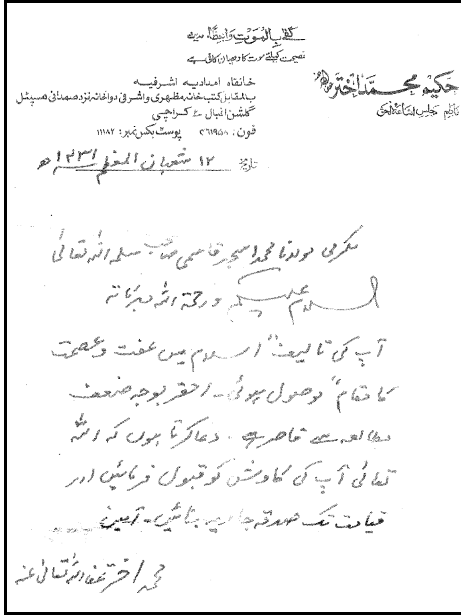 كَفٰى بِالْمَوْتِ وَاعِظًا۔ الحدیث
نصیحت کیلئے موت کا دھیان کافی ہے
حکیم محمد اختر
ناظم مجلس اشاعۃ الحق
خانقاہ امدادیہ اشرفیہ
بالمقابل کتب خانہ مظہری و اشرفی دواخانہ نزد صمدانی ہسپتال
گلشن اقبال ۲ کراچی
فون: ۴۶۱۹۵۸ پوسٹ بکس نمبر: ۱۱۱۸۲
تاریخ ۱۲ شعبان المعظم ۱۴۳۱ھ
مکرمی مولانا محمد اسجد قاسمی صاحب سلمہ اللہ تعالیٰ
السلام علیکم ورحمۃ اللہ وبرکاتہ
آپ کی تالیف "اسلام میں عفت و عصمت
کا مقام" موصول ہوئی۔ احقر بوجہ ضعف
مطالعہ سے قاصر ہے۔ دعا کرتا ہوں کہ اللہ
تعالیٰ آپ کی کاوش کو قبول فرمائیں اور
قیامت تک صدقہ جاریہ بنائیں۔ آمین
محمد اختر عفا اللہ تعالیٰ عنہ